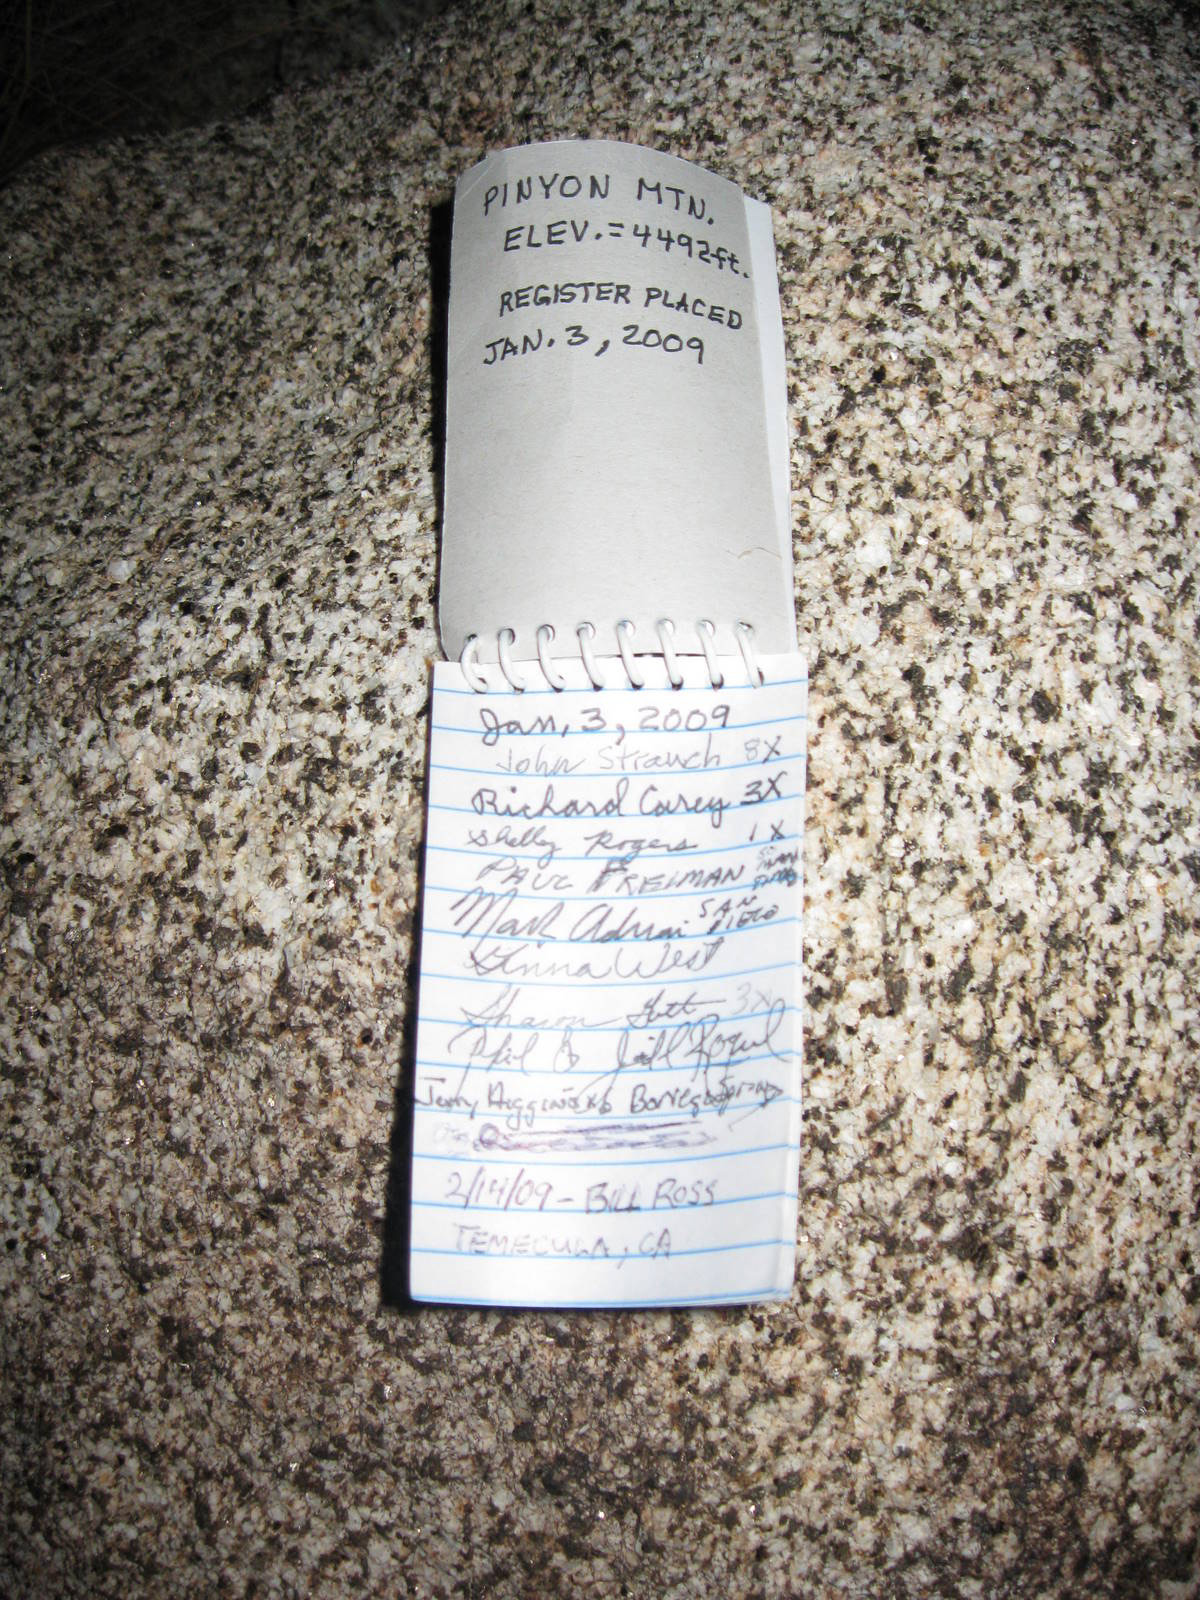 PINYON MTN.
ELEV.=4492ft.
REGISTER PLACED
JAN. 3, 2009
Jan. 3, 2009
John Strauch 8X
Richard Carey 3X
Shelly Rogers 1X
PAUL FREIMAN
Mark Adrian SAN DIEGO
Anna West
Sharon 3X
Phil & Jill
Jerry Borrego Springs
2/14/09 - BILL ROSS
TEMECULA, CA